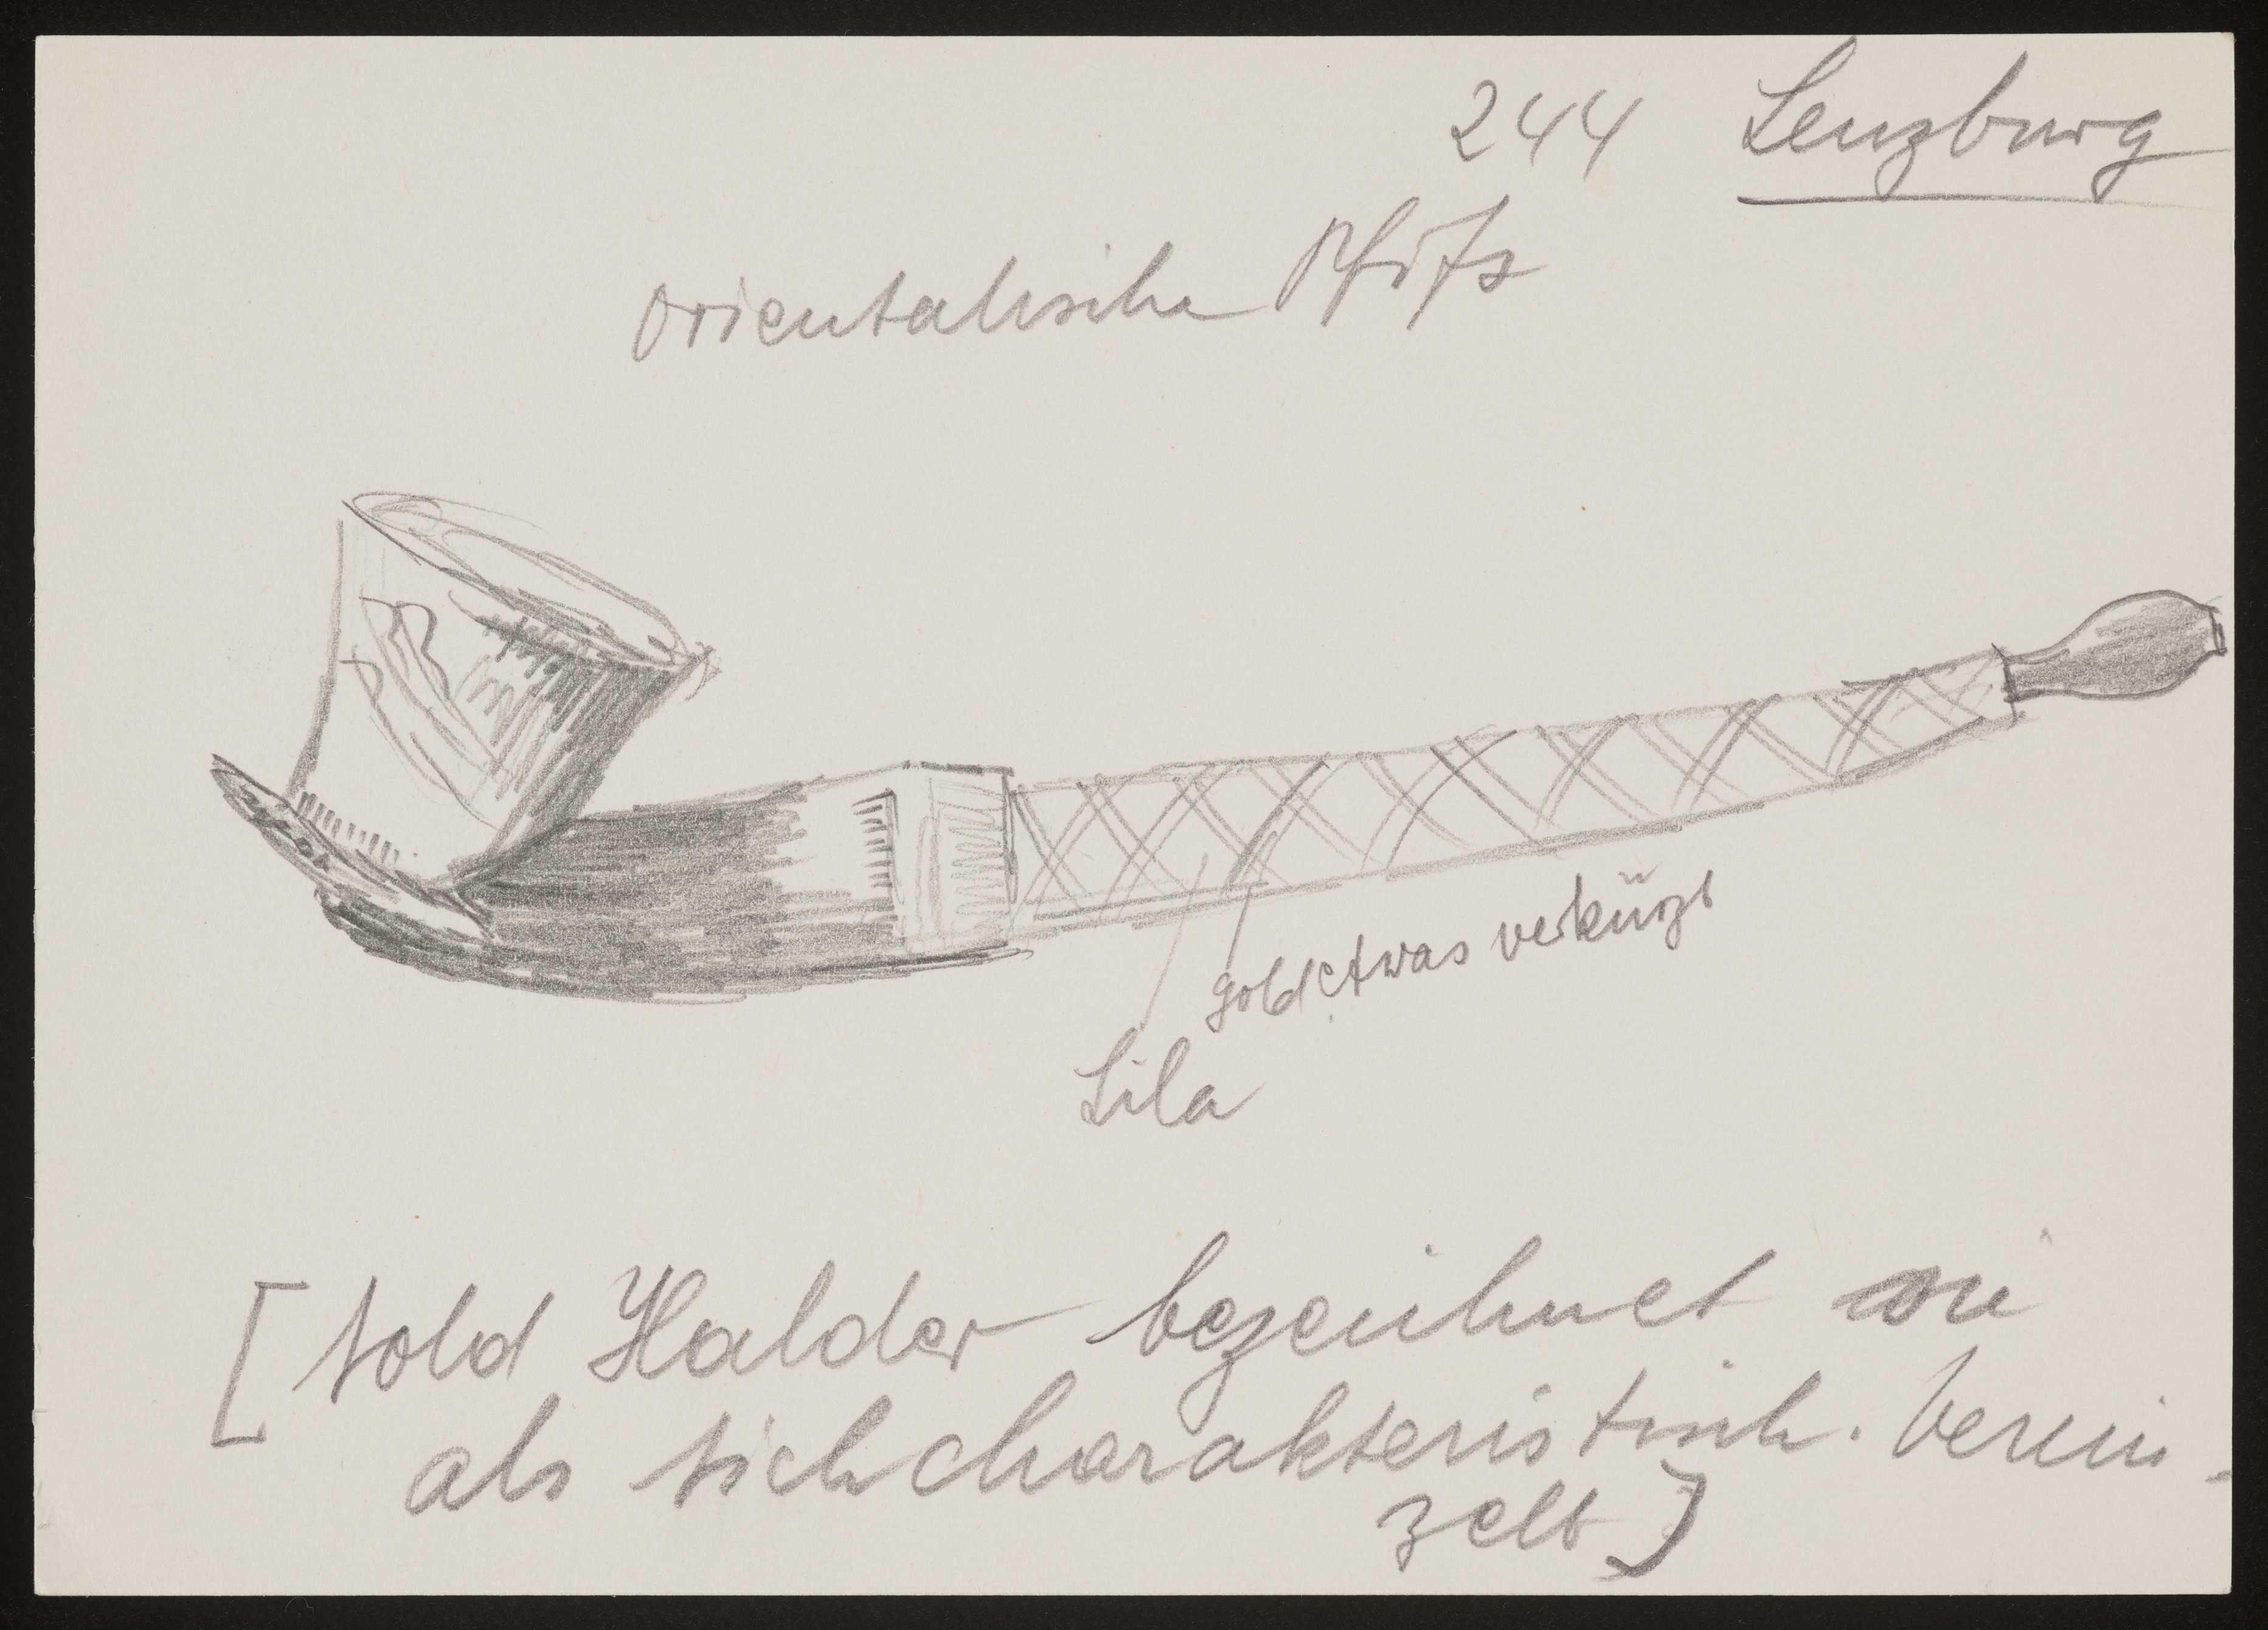 244 Lenzburg
orientalische Pfife
gold etwas verkürzt
Lila
[ Nold Halder bezeichnet sie
als nicht charakteristisch. Verein-
zelt ]